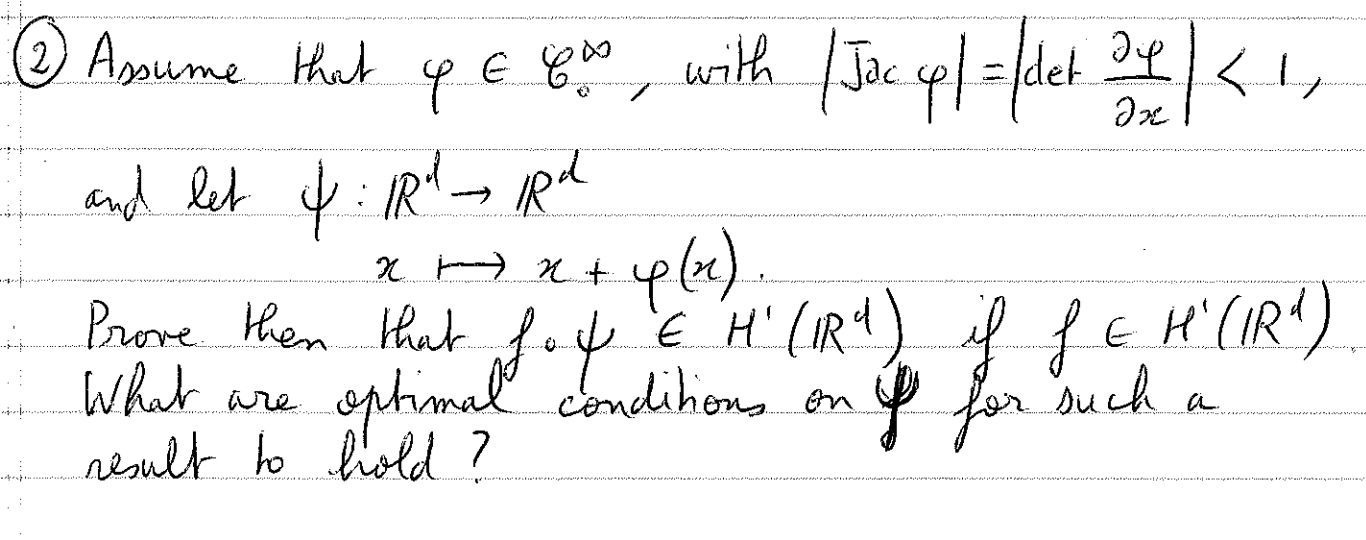 ② Assume that φ ∈ 𝒞₀^∞, with |Jac φ| = |det ∂φ/∂x| < 1,
and let ψ : ℝ^d → ℝ^d
x ↦ x + φ(x).
Prove then that f∘ψ ∈ H¹(ℝ^d) if f ∈ H¹(ℝ^d).
What are optimal conditions on φ for such a
result to hold ?